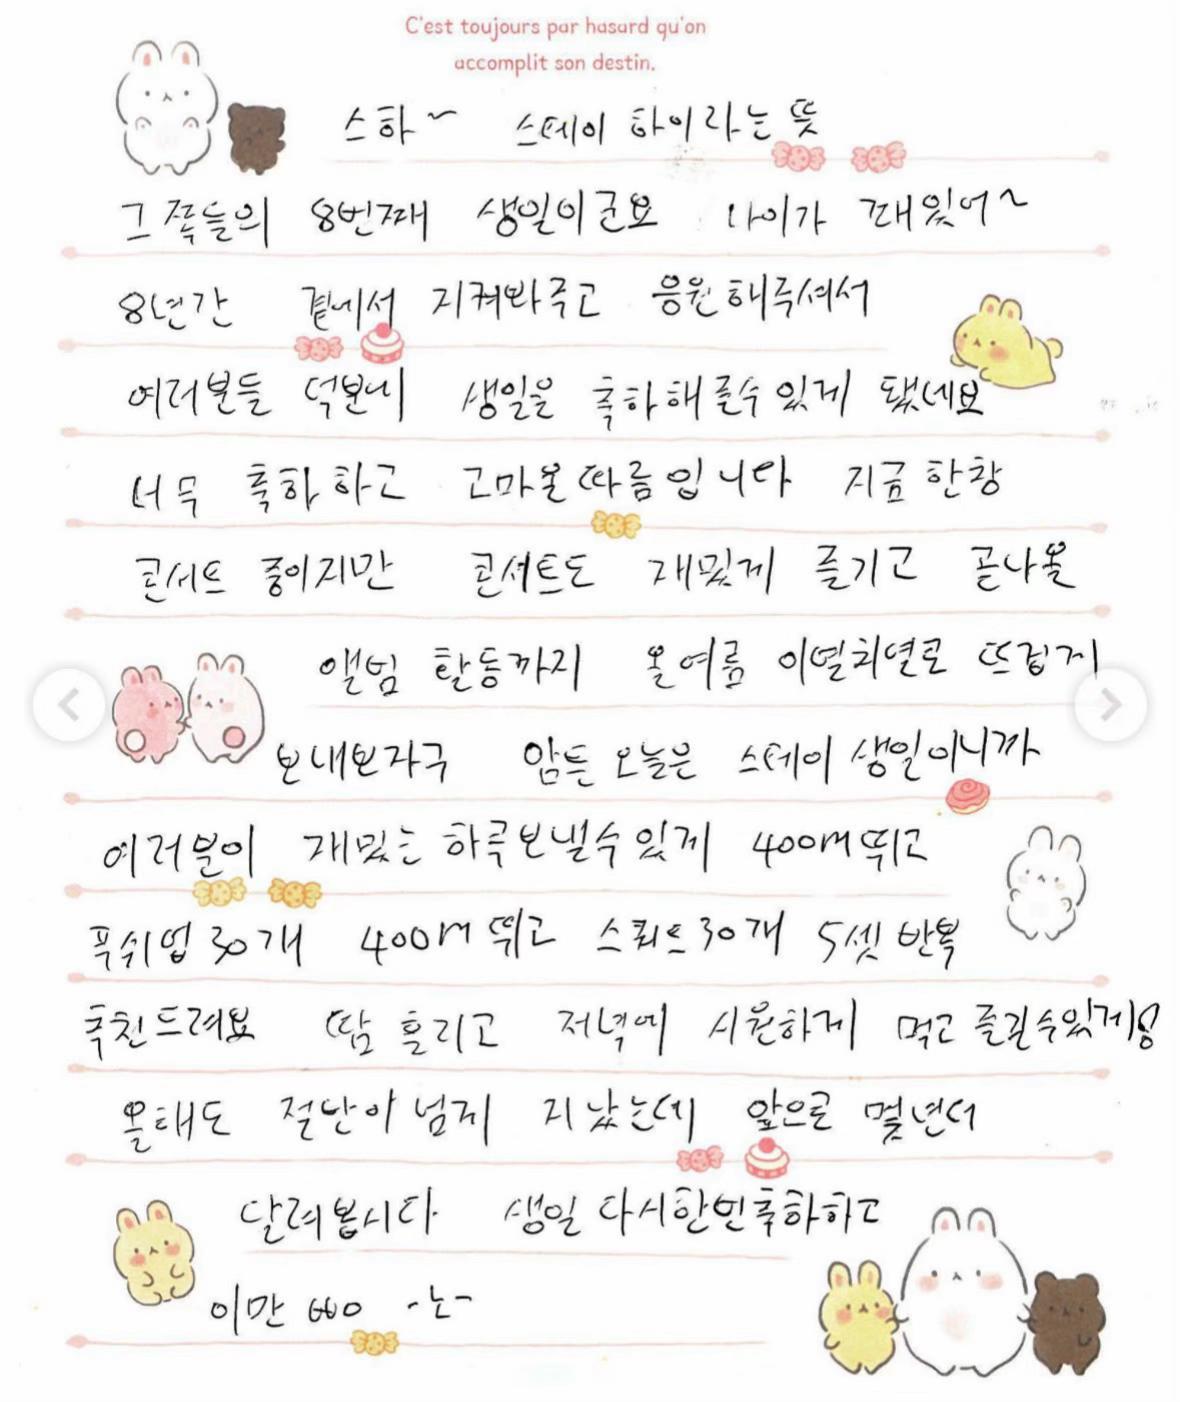 C'est toujours par hasard qu'on
accomplit son destin.
스하~ 스데이 하이라는 뜻
그쪽들의 8번째 생일이군요 나이가 꽤있어~
8년간 곁에서 지켜봐주고 응원해주셔서
여러분들 덕분에 생일을 축하해줄수 있게 됐네요
너무 축하하고 고마울따름입니다 지금 한창
콘서트 중이지만 콘서트도 재밌게 즐기고 곧나올
앨범 활동까지 올여름 이열치열로 뜨겁게
보내보자구 암튼 오늘은 스테이 생일이니까
여러분이 재밌는 하루보낼수있게 400m 뛰고
푸쉬업 30개 400m 뛰고 스쿼트 30개 5셋 반복
추천드려요 땀 흘리고 저녁에 시원하게 먹고 즐길수있게잉
올해도 절반이 넘게 지났는데 앞으로 몇년더
달려봅시다 생일 다시한번축하하고
이만 뿅 -노-